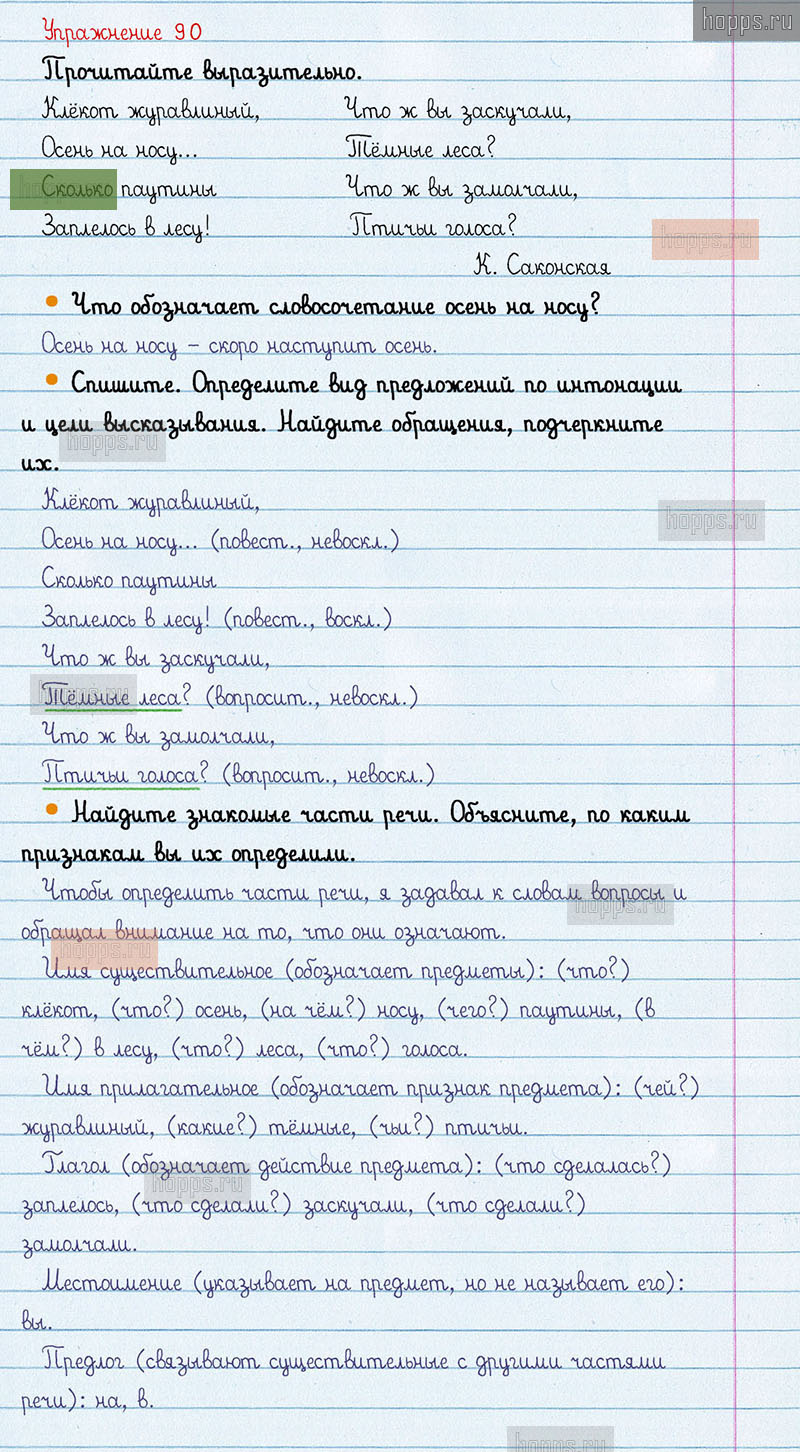 hopps.ru
Упражнение 90
Прочитайте выразительно.
Клёкот журавлиный, Что ж вы заскучали,
Осень на носу... Тёмные леса?
Сколько паутины Что ж вы замолчали,
hopps.ru
Заплелось в лесу! Птичьи голоса?
hopps.ru
К. Саконская
• Что обозначает словосочетание осень на носу?
Осень на носу – скоро наступит осень.
• Спишите. Определите вид предложений по интонации
и цели высказывания. Найдите обращения, подчеркните
hopps.ru
их.
Клёкот журавлиный,
hopps.ru
Осень на носу... (повест., невоскл.)
Сколько паутины
Заплелось в лесу! (повест., воскл.)
Что ж вы заскучали,
hopps.ru
Тёмные леса? (вопросит., невоскл.)
Что ж вы замолчали,
Птичьи голоса? (вопросит., невоскл.)
• Найдите знакомые части речи. Объясните, по каким
признакам вы их определили.
Чтобы определить части речи, я задавал к словам вопросы и
hopps.ru
обращал внимание на то, что они означают.
hopps.ru
Имя существительное (обозначает предметы): (что?)
клёкот, (что?) осень, (на чём?) носу, (чего?) паутины, (в
чём?) в лесу, (что?) леса, (что?) голоса.
Имя прилагательное (обозначает признак предмета): (чей?)
журавлиный, (какие?) тёмные, (чьи?) птичьи.
Глагол (обозначает действие предмета): (что сделалась?)
hopps.ru
заплелось, (что сделали?) заскучали, (что сделали?)
замолчали.
Местоимение (указывает на предмет, но не называет его):
вы.
Предлог (связывают существительные с другими частями
речи): на, в.
hopps.ru